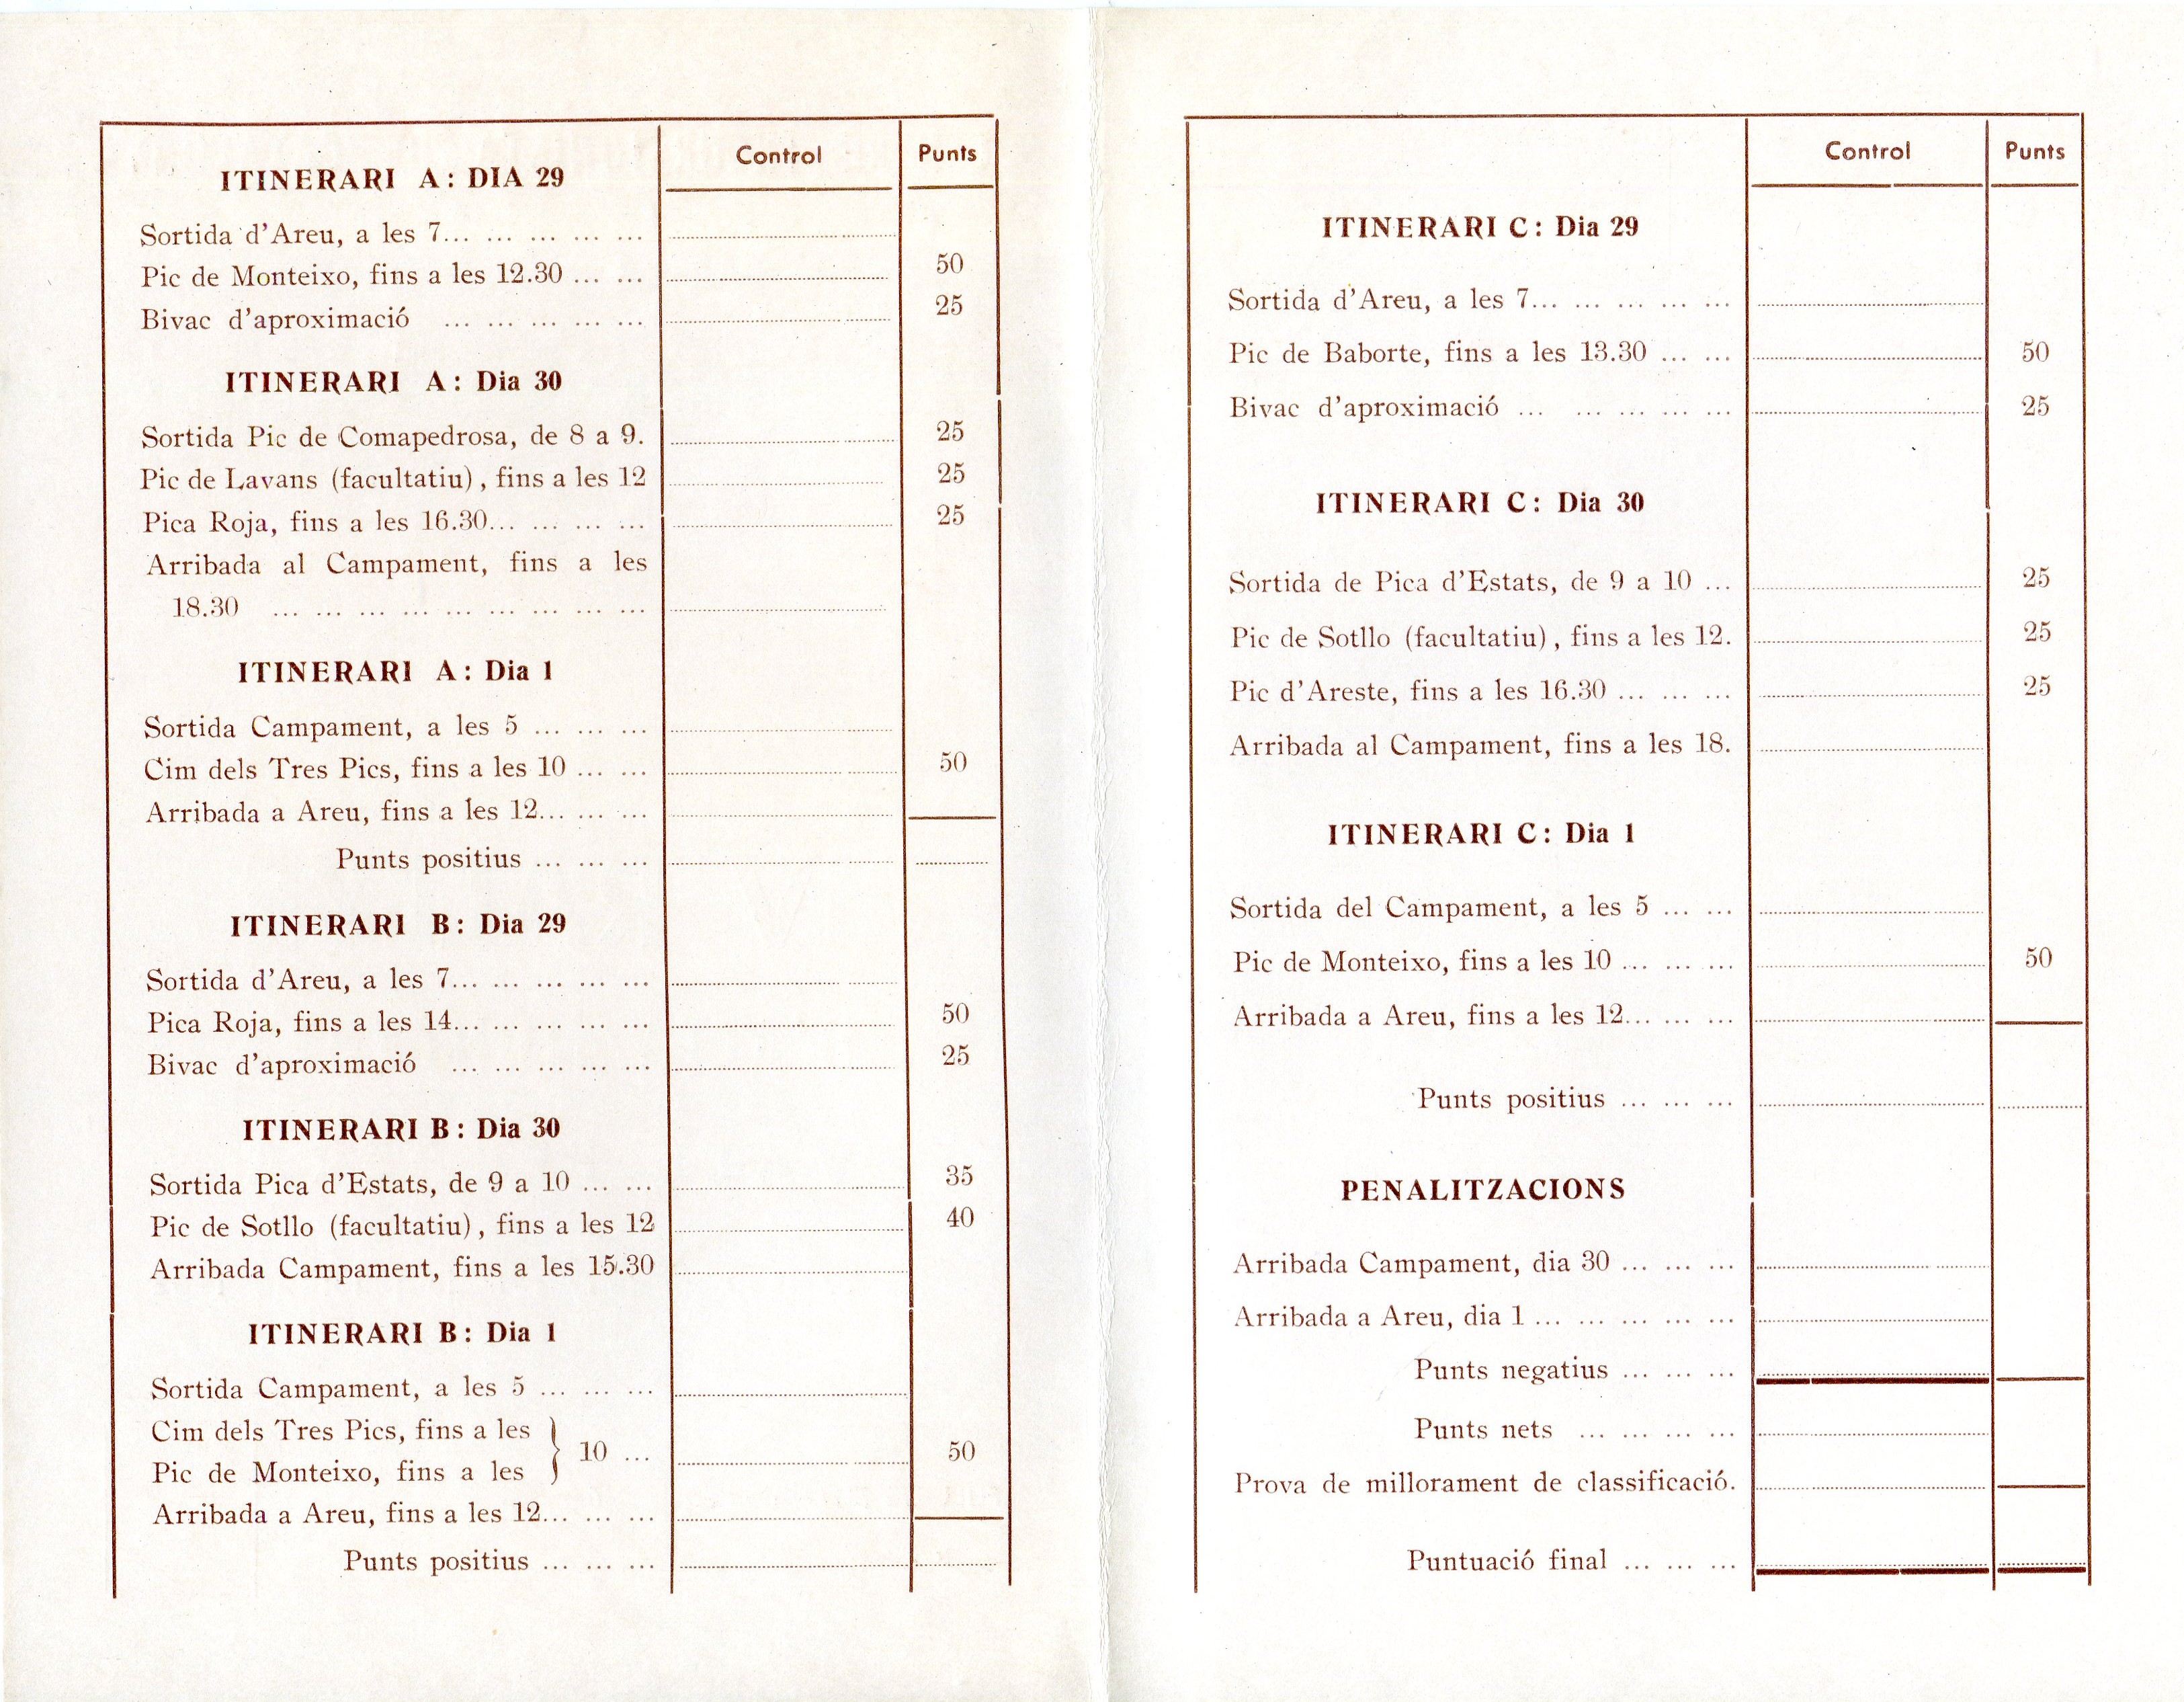 Control Punts
ITINERARI A: DIA 29
Sortida d'Areu, a les 7... ... ... ... ...
Pic de Monteixo, fins a les 12.30 ... ... 50
Bivac d'aproximació ... ... ... ... ... 25
ITINERARI A: Dia 30
Sortida Pic de Comapedrosa, de 8 a 9. 25
Pic de Lavans (facultatiu), fins a les 12 25
Pica Roja, fins a les 16.30... ... ... ... 25
Arribada al Campament, fins a les
18.30 ... ... ... ... ... ... ... ... ... ...
ITINERARI A: Dia 1
Sortida Campament, a les 5 ... ... ...
Cim dels Tres Pics, fins a les 10 ... ... 50
Arribada a Areu, fins a les 12... ... ...
Punts positius ... ... ...
ITINERARI B: Dia 29
Sortida d'Areu, a les 7... ... ... ... ...
Pica Roja, fins a les 14... ... ... ... ... 50
Bivac d'aproximació ... ... ... ... ... 25
ITINERARI B: Dia 30
Sortida Pica d'Estats, de 9 a 10 ... ... 35
Pic de Sotllo (facultatiu), fins a les 12 40
Arribada Campament, fins a les 15.30
ITINERARI B: Dia 1
Sortida Campament, a les 5 ... ... ...
Cim dels Tres Pics, fins a les
Pic de Monteixo, fins a les } 10 ... 50
Arribada a Areu, fins a les 12... ... ...
Punts positius ... ... ...
Control Punts
ITINERARI C: Dia 29
Sortida d'Areu, a les 7... ... ... ... ...
Pic de Baborte, fins a les 13.30 ... ... 50
Bivac d'aproximació ... ... ... ... ... 25
ITINERARI C: Dia 30
Sortida de Pica d'Estats, de 9 a 10 ... 25
Pic de Sotllo (facultatiu), fins a les 12. 25
Pic d'Areste, fins a les 16.30 ... ... ... 25
Arribada al Campament, fins a les 18.
ITINERARI C: Dia 1
Sortida del Campament, a les 5 ... ...
Pic de Monteixo, fins a les 10 ... ... ... 50
Arribada a Areu, fins a les 12... ... ...
Punts positius ... ... ...
PENALITZACIONS
Arribada Campament, dia 30 ... ... ...
Arribada a Areu, dia 1 ... ... ... ... ...
Punts negatius ... ... ...
Punts nets ... ... ... ...
Prova de millorament de classificació.
Puntuació final ... ... ...